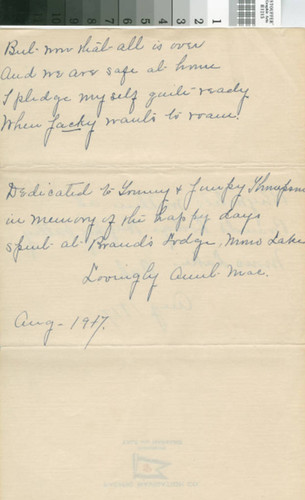 But now that all is over
And we are safe at home
I pledge my self quite ready
When Jacky wants to roam!
Dedicated to Tommy & Jimpy Thompson
in memory of the happy days
spent at Brand's Lodge, Mono Lake
Lovingly Aunt Mae.
Aug - 1917.